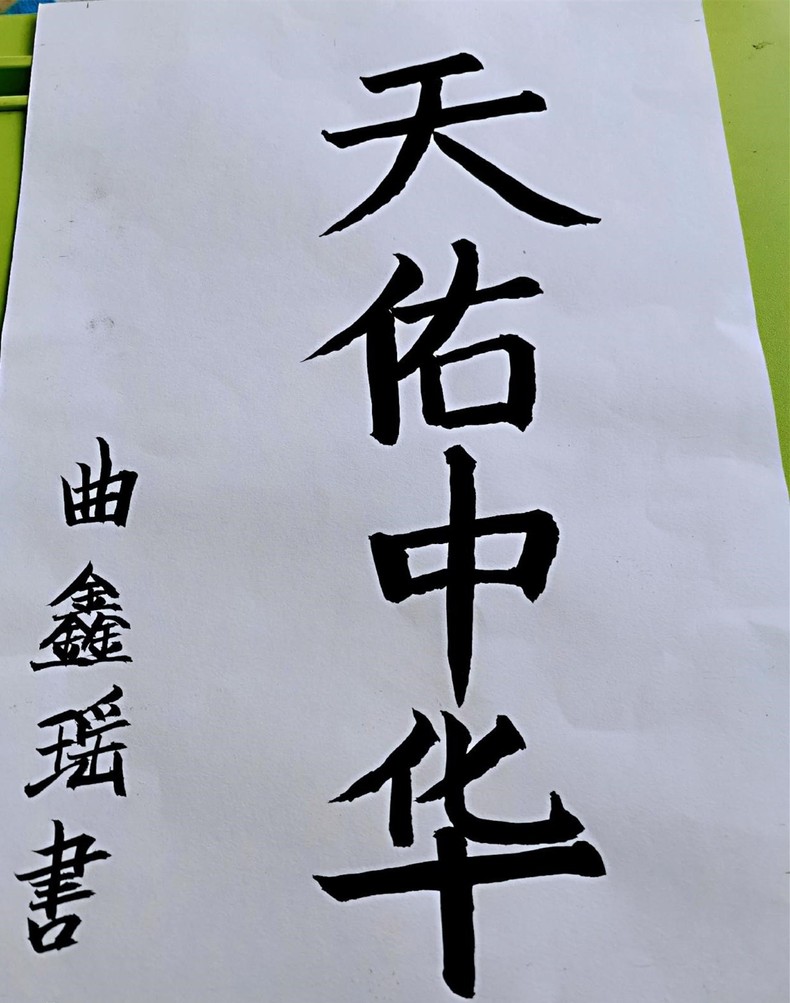 天佑中华
曲鑫瑶書